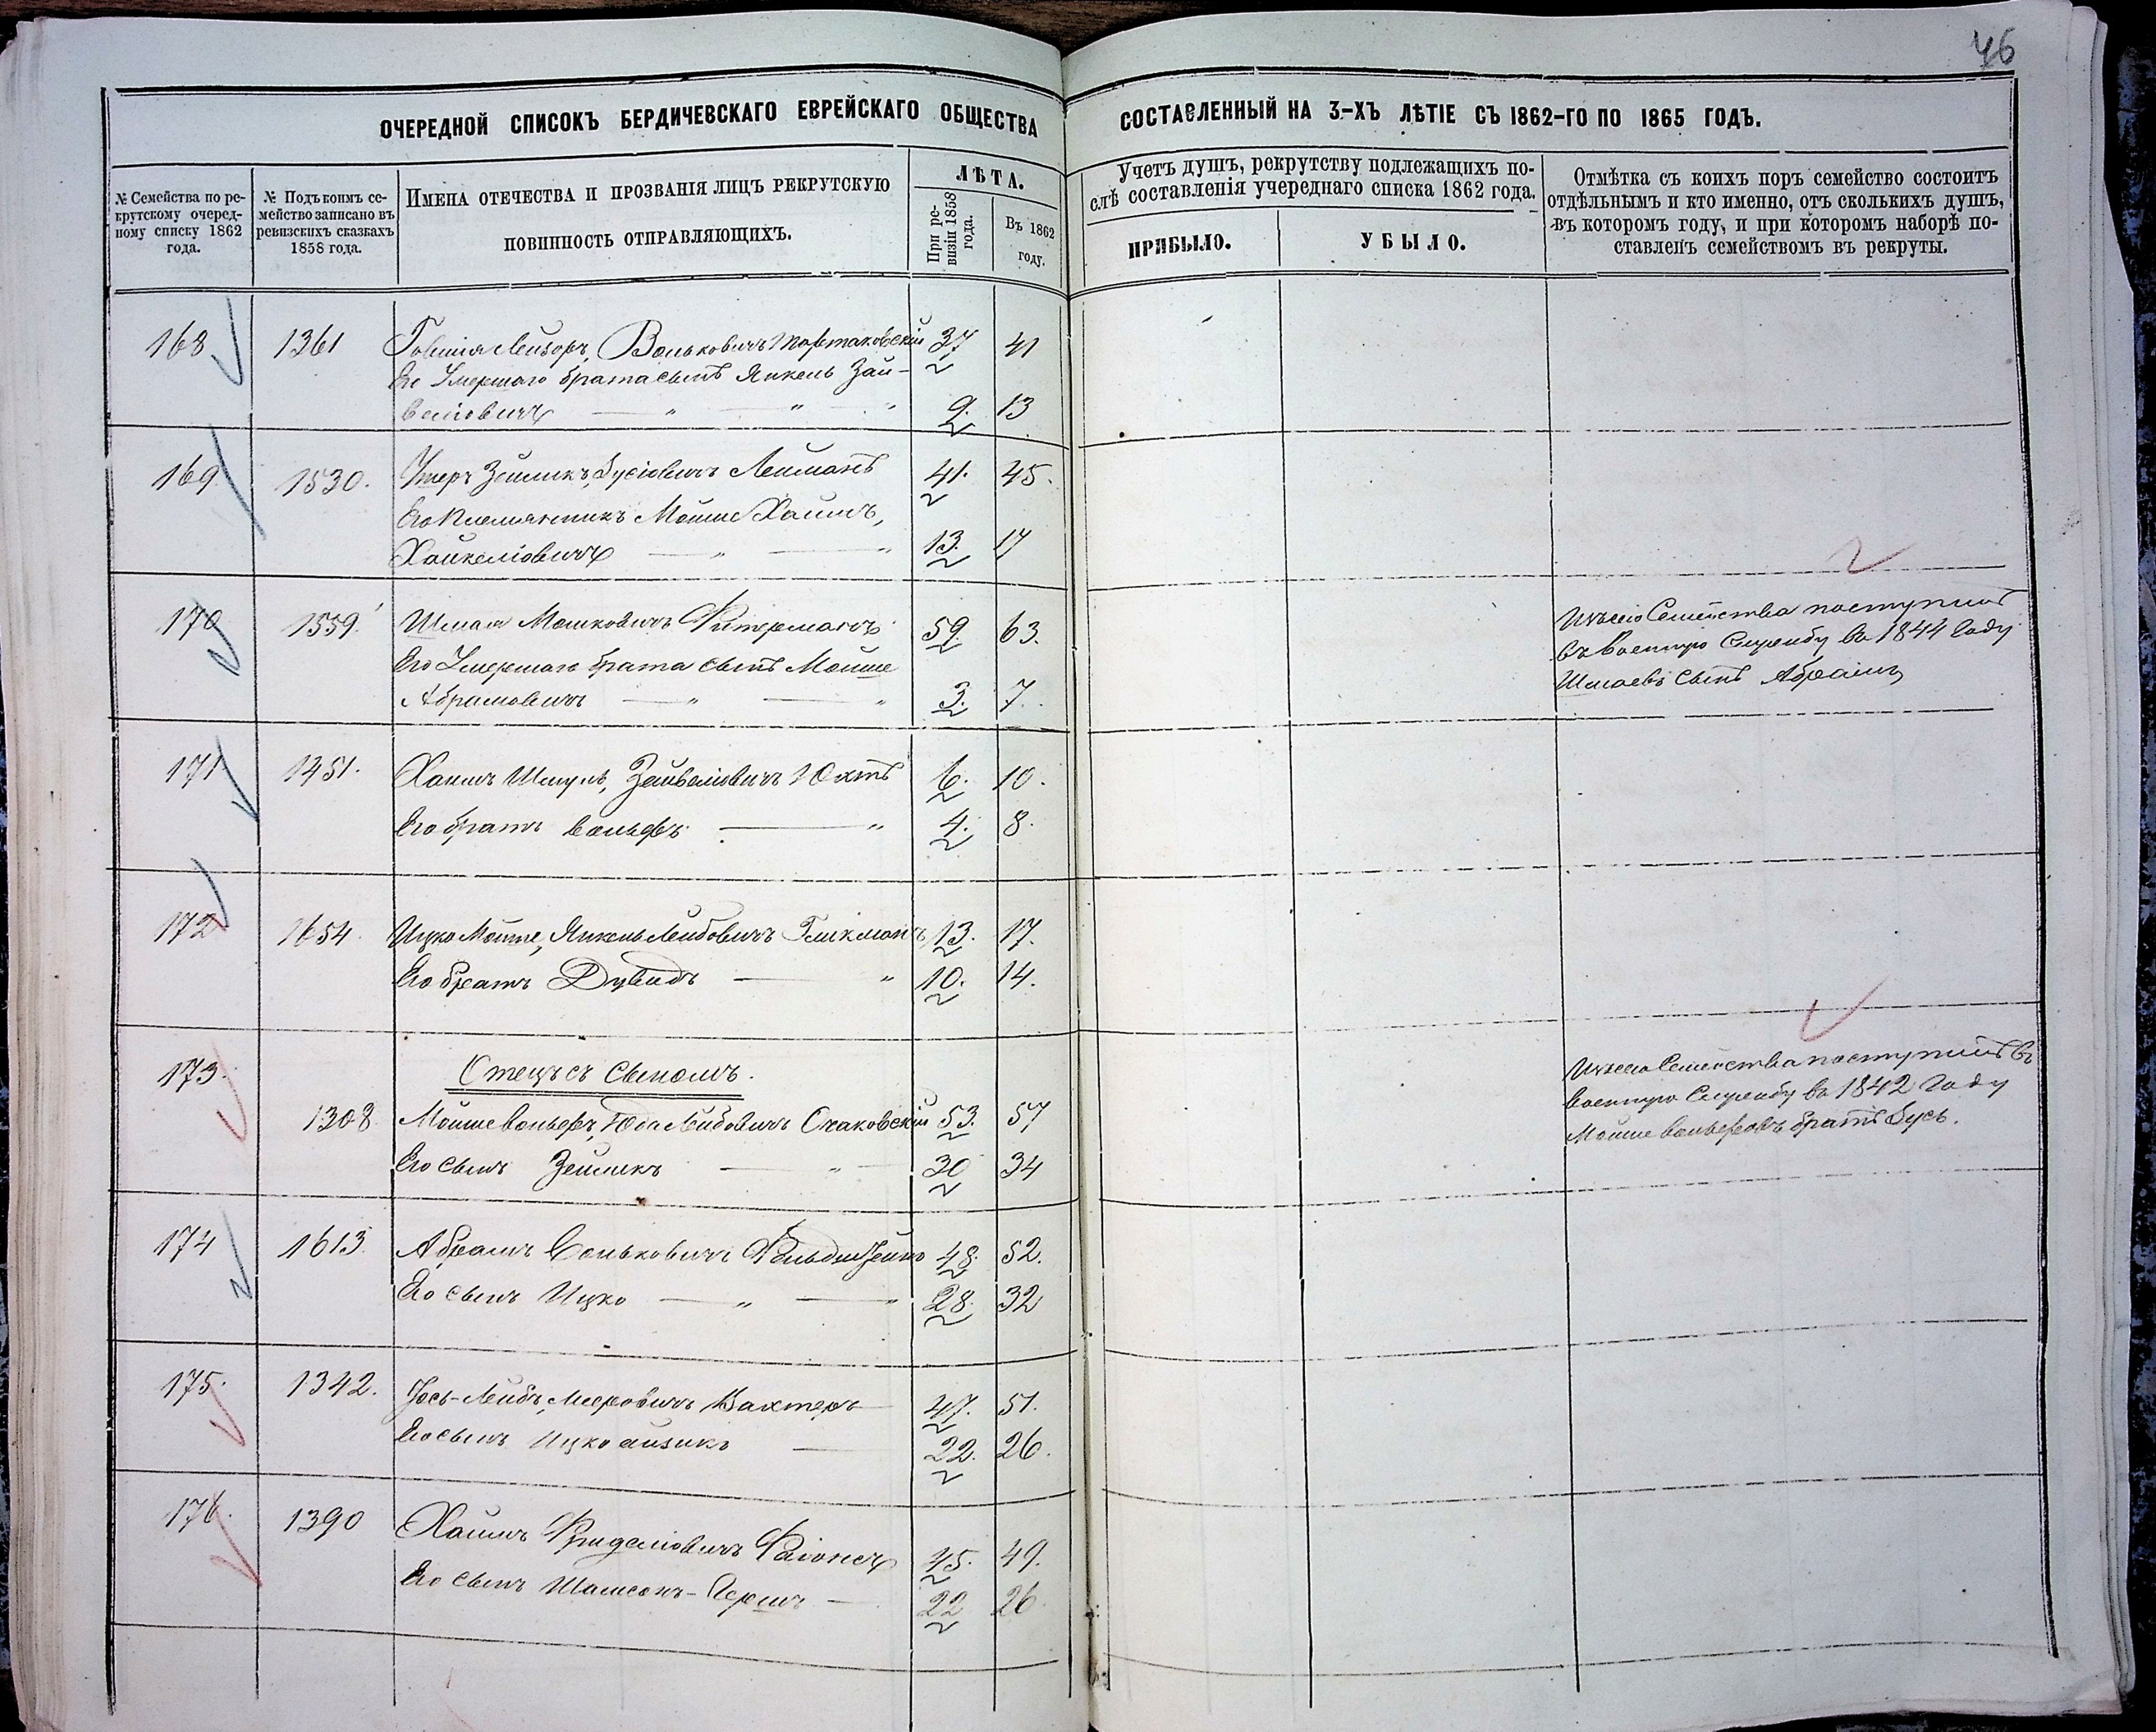 46
ОЧЕРЕДНОЙ СПИСОКЪ БЕРДИЧЕВСКАГО ЕВРЕЙСКАГО ОБЩЕСТВА
СОСТАВЛЕННЫЙ НА 3-ХЪ ЛѢТІЕ СЪ 1862-ГО ПО 1865 ГОДЪ.
№ Семейства по ре-
крутскому очеред-
ному списку 1862
года.
№ Подъ коимъ се-
мейство записано въ
ревизскихъ сказкахъ
1858 года.
ИМЕНА ОТЕЧЕСТВА И ПРОЗВАНІЯ ЛИЦЪ РЕКРУТСКУЮ
ПОВИННОСТЬ ОТПРАВЛЯЮЩИХЪ.
ЛѢТА.
При ре-
визіи 1858
года.
Въ 1862
году.
Учетъ душъ, рекрутству подлежащихъ по-
слѣ составленія учереднаго списка 1862 года.
ПРИБЫЛО.
УБЫЛО.
Отмѣтка съ коихъ поръ семейство состоитъ
отдѣльнымъ и кто именно, отъ сколькихъ душъ,
въ которомъ году, и при которомъ наборѣ по-
ставленъ семействомъ въ рекруты.
168 1361 Лейзоръ, Вольковичъ Портаковскій 37 41
Его Умершаго брата сынъ Янкель Зай-
веліовичъ — " — " — " 9. 13
169 1530. Зейликъ, Сусіовичъ Лейманъ 41. 45.
Его Племянникъ Мойше Хаимъ,
Хайкеліовичъ — " — " 13. 17
170 1559. Шмая Мошковичъ Фитерманъ 59. 63.
Его Умершаго брата сынъ Мойше
Абрамовичъ — " — " 3. 7.
Изъ сего Семейства поступилъ
въ Военную Службу въ 1844 Году
Шмаевъ сынъ Абрамъ
171 1451. Хаимъ Шмуль, Зейвеліовичъ Юхтъ 6. 10.
Его братъ Вольфъ — " 4. 8.
172 1654. Ицко Мойше, Янкель Лейбовичъ Гликманъ 13. 17.
Его братъ Дувидъ — " 10. 14.
173. Отецъ съ сыномъ.
1308 Мойше Вольфъ, Юда Лейбовичъ Очаковскій 53. 57
Его сынъ Зейликъ — " — 30 34
Изъ сего Семейства поступилъ въ
Военную Службу въ 1842 Году
Мойше Вольфовъ братъ Сусь.
174 1613. Абрамъ Вольковичъ 48. 52.
Его сынъ Ицко — " — " 28. 32
175. 1342. Іось-Лейбъ, Мееровичъ Вахтеръ 47. 51.
Его сынъ Ицко Айзикъ — 22. 26.
176. 1390 Хаимъ Фриделіовичъ 45. 49.
Его сынъ Шамсонъ-Гершъ — 22 26